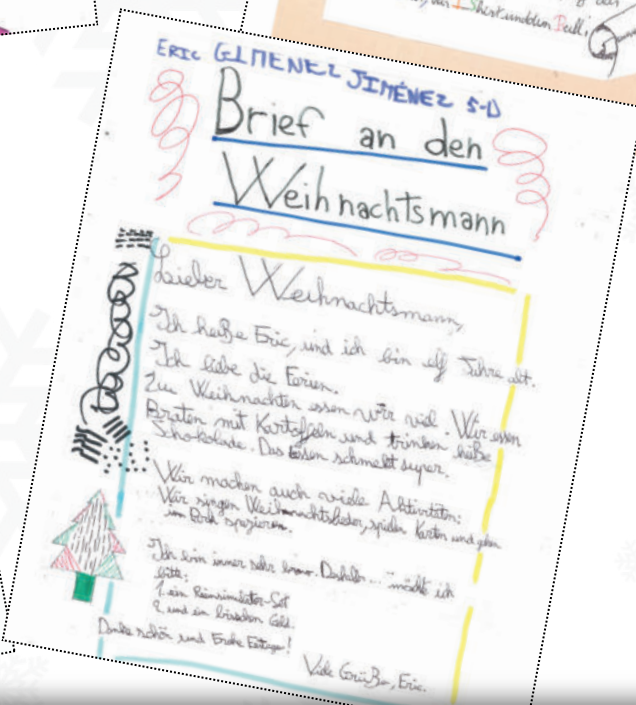 Shest und den Pauli,
ERIC GIMENEZ JIMÉNEZ 5-D
Brief an den
Weihnachtsmann
Lieber Weihnachtsmann,
Ich heiße Eric, und ich bin elf Jahre alt.
Ich liebe die Ferien.
Zu Weihnachten essen wir viel. Wir essen
Braten mit Kartoffeln und trinken heiße
Schokolade. Das Essen schmekt super.
Wir machen auch viele Aktivitäten:
Wir singen Weihnachtslieder, spielen Karten und gehen
im Park spazieren.
Ich bin immer sehr brav. Deshalb... möcht ich
bitte:
1. ein
2. und ein bisschen Geld.
Danke schön und Frohe Festage!
Viele Grüße, Eric.